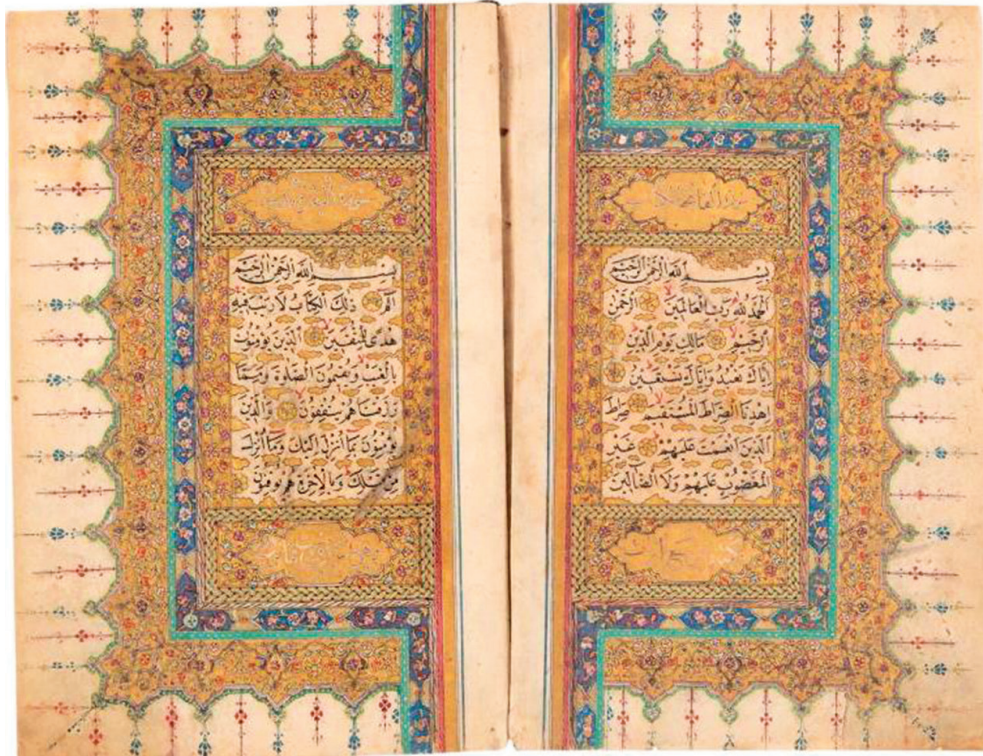 سورة الفاتحة الكتاب
بسم الله الرحمن الرحيم
الحمد لله رب العالمين الرحمن
الرحيم مالك يوم الدين
اياك نعبد واياك نستعين
اهدنا الصراط المستقيم صراط
الذين انعمت عليهم غير
المغضوب عليهم ولا الضالين
سورة
بسم الله الرحمن الرحيم
الم ذلك الكتاب لا ريب فيه
هدى للمتقين الذين يؤمنون
بالغيب ويقيمون الصلوة ومما
رزقناهم ينفقون والذين
يؤمنون بما انزل اليك وما انزل
من قبلك وبالاخرة هم يوقنون